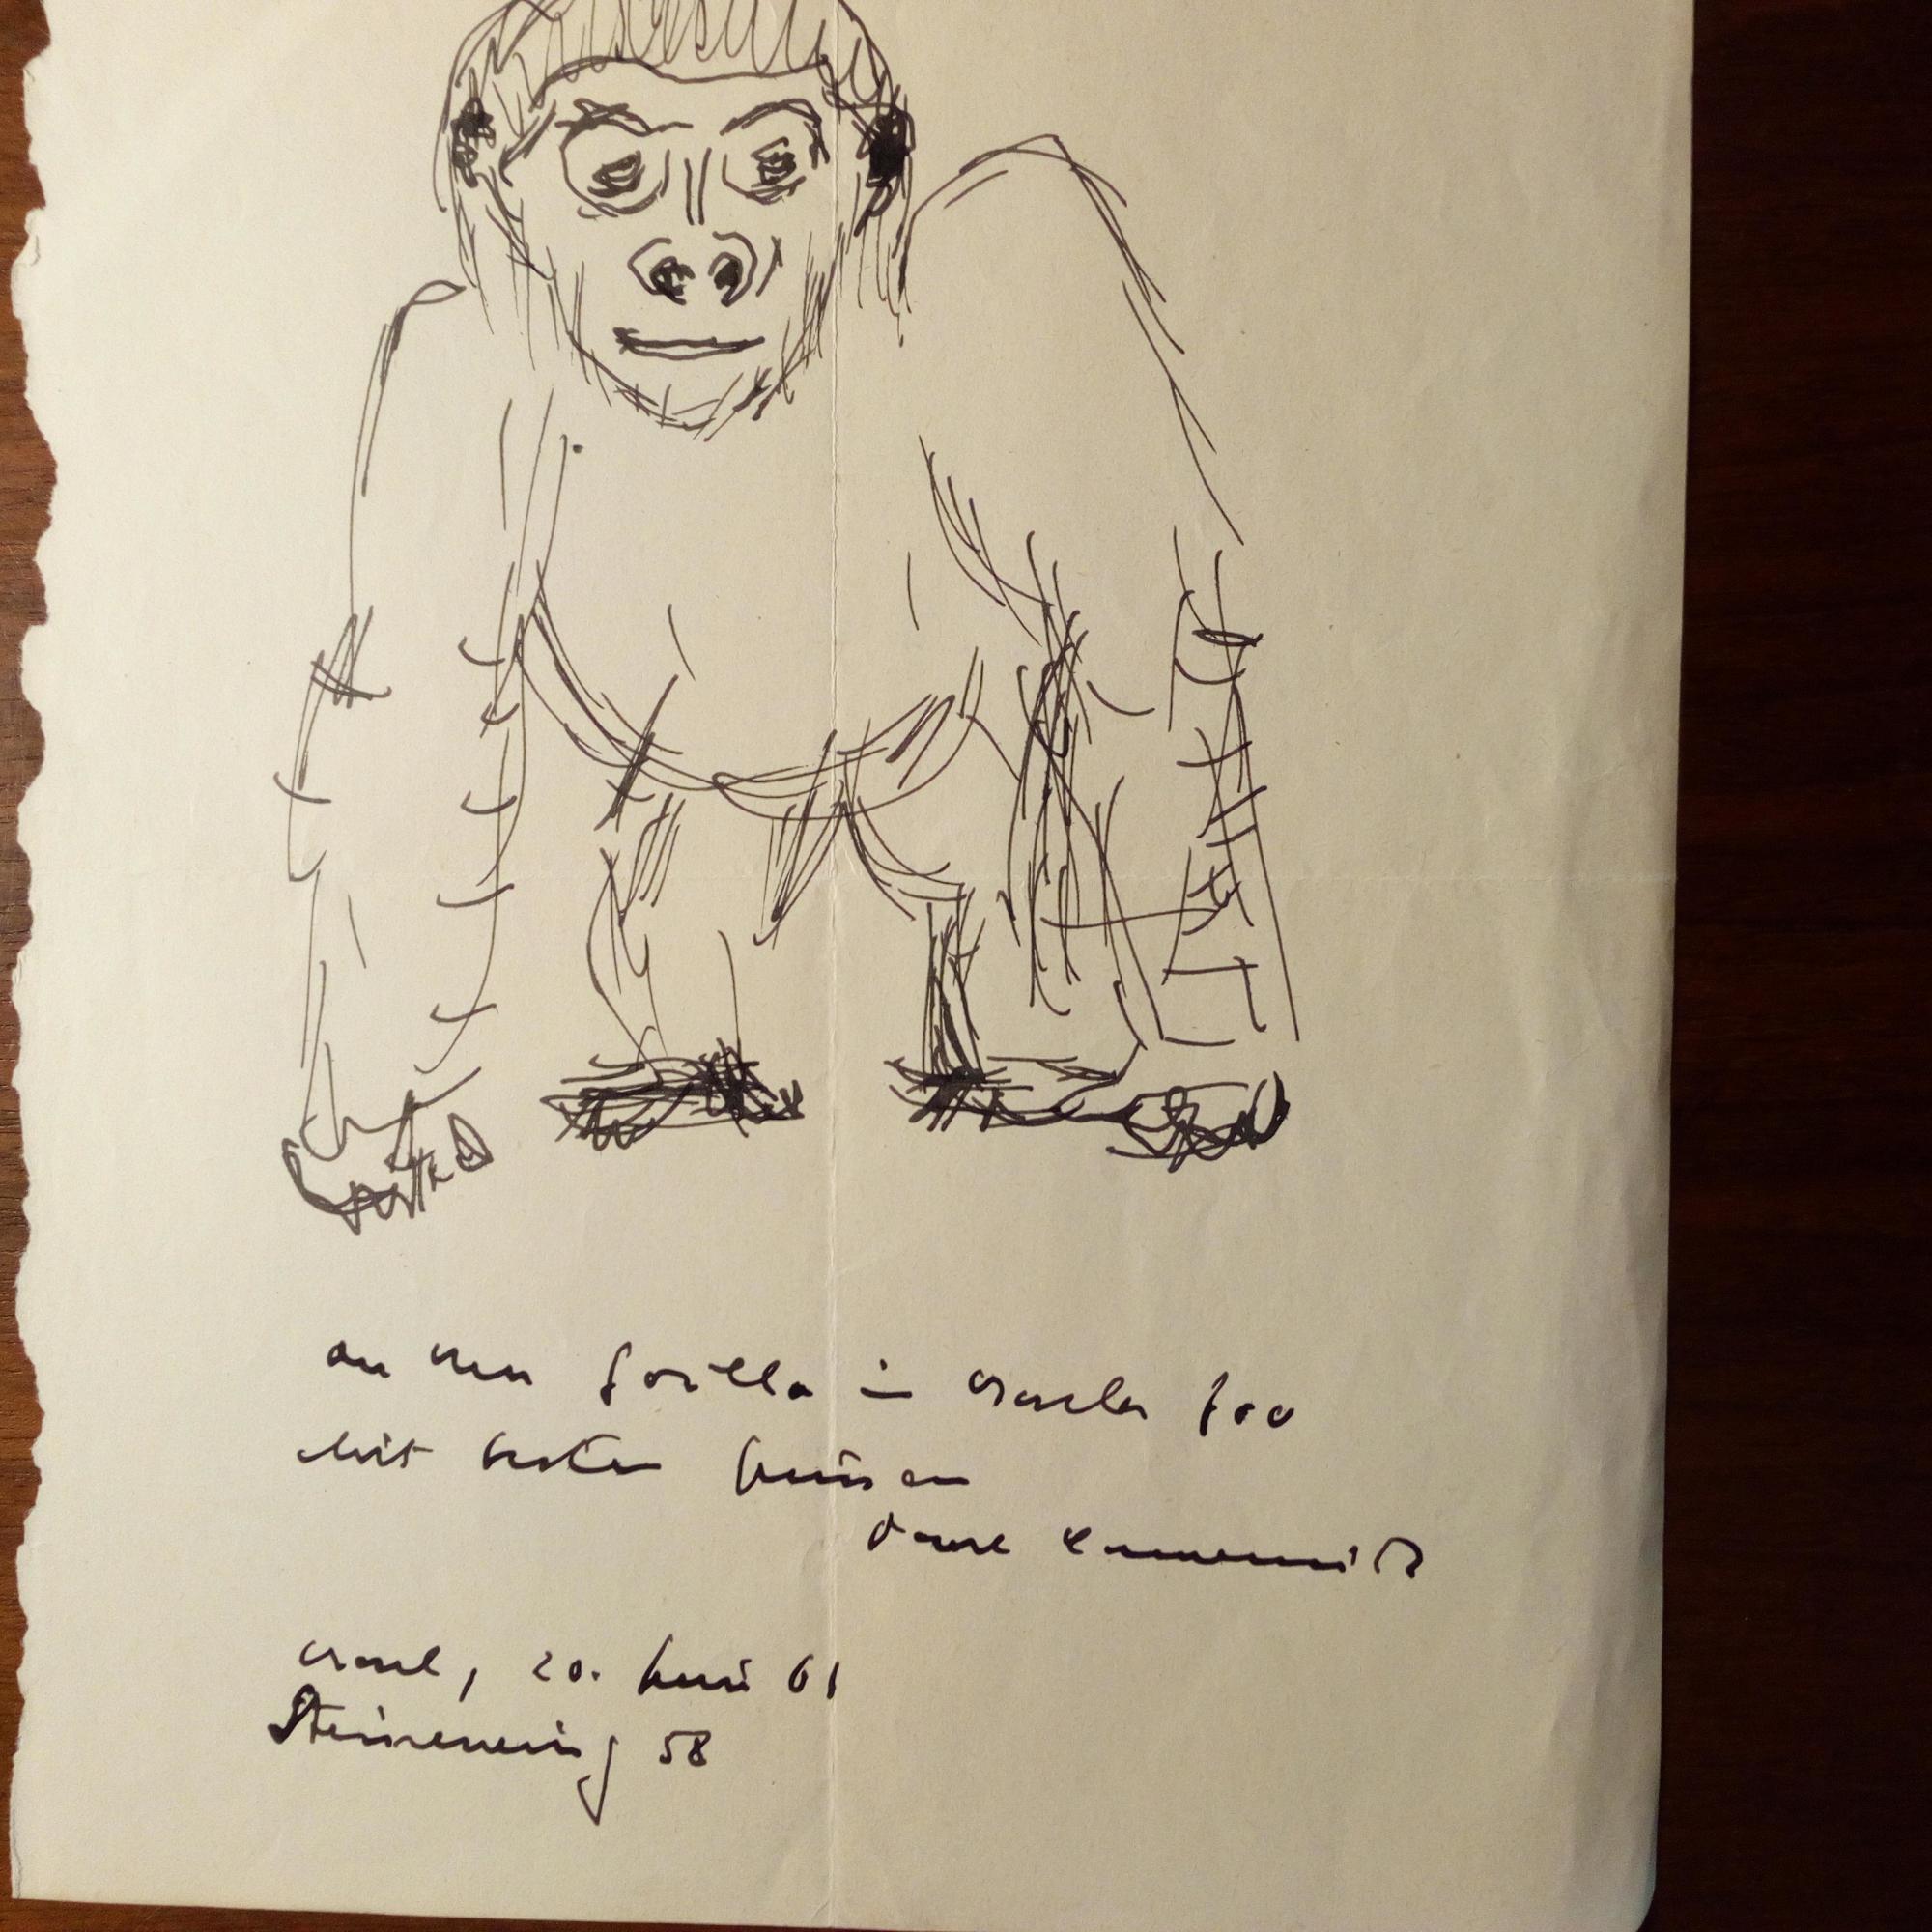 an den Gorilla im Basler Zoo
mit besten Grüssen
Paul Camenisch
Basel, 20. Juni 61
Steinenring 58